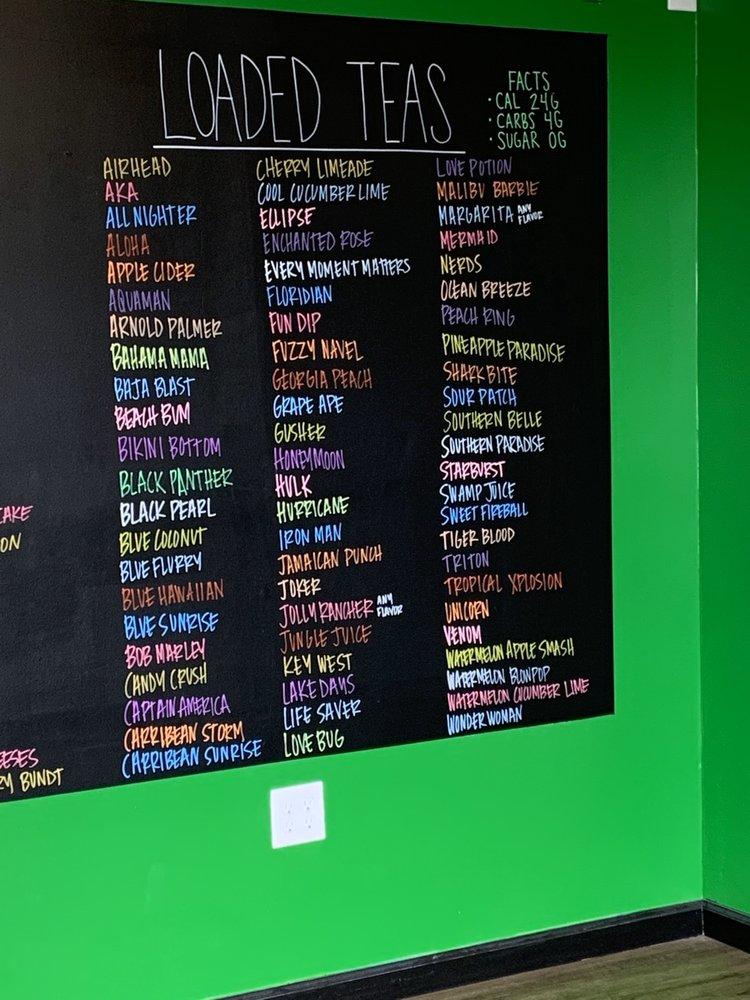 LOADED TEAS
FACTS
• CAL 24G
• CARBS 4G
• SUGAR 0G
AIRHEAD
AKA
ALL NIGHTER
ALOHA
APPLE CIDER
AQUAMAN
ARNOLD PALMER
BAHAMA MAMA
BAJA BLAST
BEACH BUM
BIKINI BOTTOM
BLACK PANTHER
BLACK PEARL
BLUE COCONUT
BLUE FLURRY
BLUE HAWAIIAN
BLUE SUNRISE
BOB MARLEY
CANDY CRUSH
CAPTAIN AMERICA
CARRIBEAN STORM
CARRIBEAN SUNRISE
CHERRY LIMEADE
COOL CUCUMBER LIME
ECLIPSE
ENCHANTED ROSE
EVERY MOMENT MATTERS
FLORIDIAN
FUN DIP
FUZZY NAVEL
GEORGIA PEACH
GRAPE APE
GUSHER
HONEYMOON
HULK
HURRICANE
IRON MAN
JAMAICAN PUNCH
JOKER
JOLLY RANCHER ANY FLAVOR
JUNGLE JUICE
KEY WEST
LAKE DAYS
LIFE SAVER
LOVE BUG
LOVE POTION
MALIBU BARBIE
MARGARITA ANY FLAVOR
MERMAID
NERDS
OCEAN BREEZE
PEACH RING
PINEAPPLE PARADISE
SHARK BITE
SOUR PATCH
SOUTHERN BELLE
SOUTHERN PARADISE
STARBURST
SWAMP JUICE
SWEET FIREBALL
TIGER BLOOD
TRITON
TROPICAL XPLOSION
UNICORN
VENOM
WATERMELON APPLE SMASH
WATERMELON BLOWPOP
WATERMELON CUCUMBER LIME
WONDER WOMAN
CAKE
ON
EESES
RY BUNDT